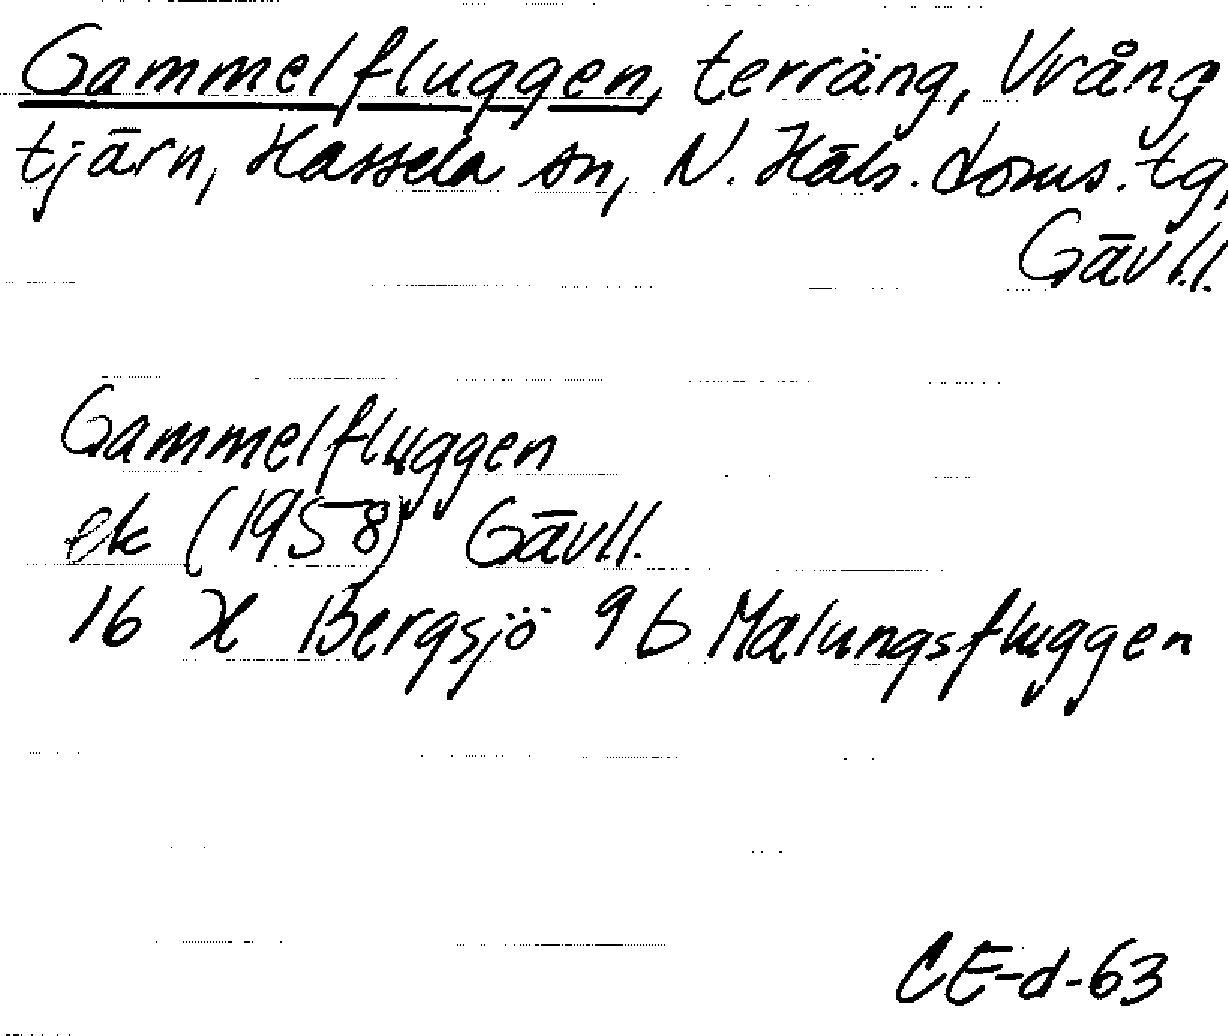 Gammelfluggen, terräng, Vrång
tjärn, Hassela sn, N. Häls. doms. tg,
Gävl.l.
Gammelfluggen
ek (1958) Gävl.l.
16 H Bergsjö 9 b Malungsfluggen
CE-d-63